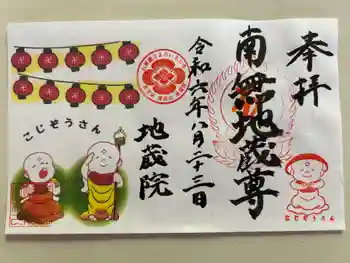 奉拝
南無地蔵尊
令和六年八月二十三日
地蔵院
こじぞうさん
こじぞうさん